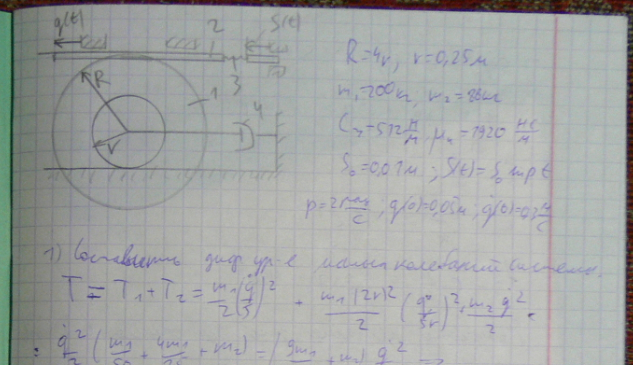 q(t) 2 S(t)
R=4r, r=0,25м
3
R 1 4
m₁=200кг, m₂=88кг
r
C₃=512 н/м, μ₄=1920 нс/м
S₀=0,02м; S(t)=S₀ sin pt
p=2π рад/с; q(0)=0,05м; q̇(0)=0,2 м/с
1) Составить диф ур-е малых колебаний системы.
T = T₁+T₂ = m₁/2 (q̇/5)² + m₁(2r)²/2 (q̇/5r)² + m₂q̇²/2 =
= q̇²/2 (m₁/25 + 4m₁/25 + m₂) =